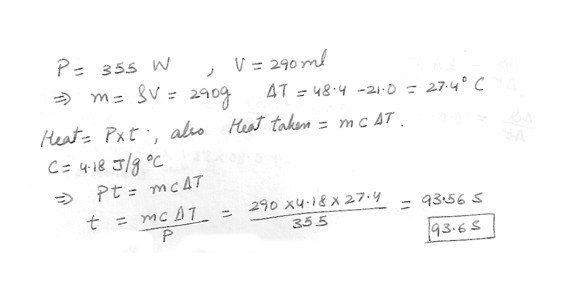 P = 355 W , V = 290 ml
⇒ m = ρV = 290g ΔT = 48.4 - 21.0 = 27.4° C
Heat = Pxt ., also Heat taken = m c ΔT .
C = 4.18 J/g °C
⇒ Pt = mcΔT
t = mcΔT / P = 290 x 4.18 x 27.4 / 355 = 93.56 S
93.6 S